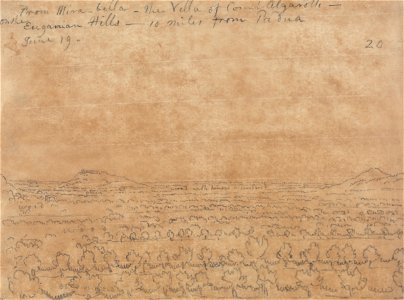 From Mira-bella - the Villa of Count Algarotti -
on the Euganian Hills - 10 miles from Padua
June 19 -
20